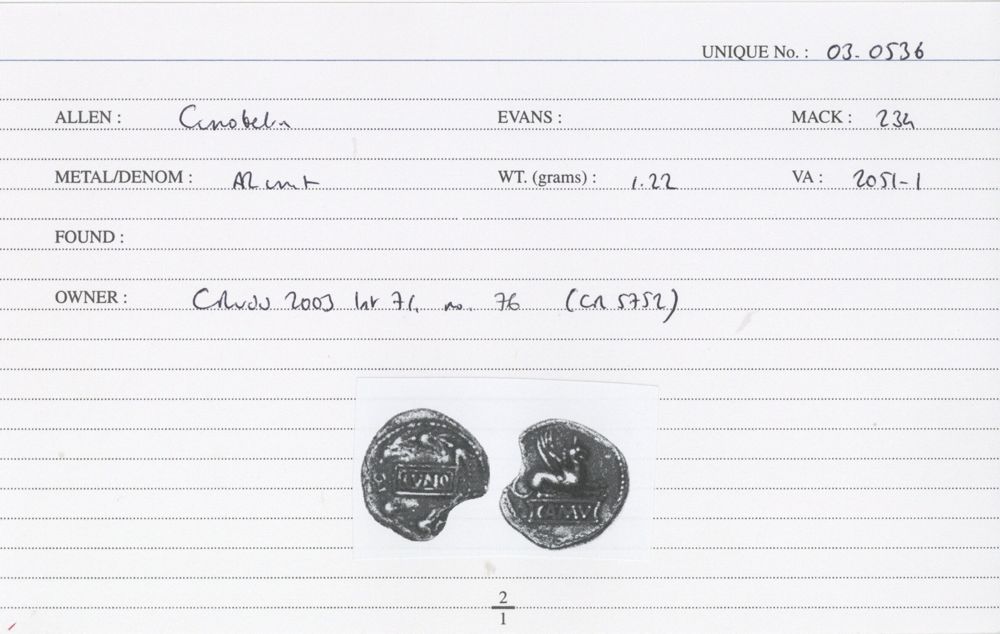 UNIQUE No. : 03-0536
ALLEN : Cunobelin EVANS : MACK : 234
METAL/DENOM : AR unit WT. (grams) : 1.22 VA : 2051-1
FOUND :
OWNER : 2003 list 71, no. 76 (CR 5752)
CUNO
CAMV
2
1